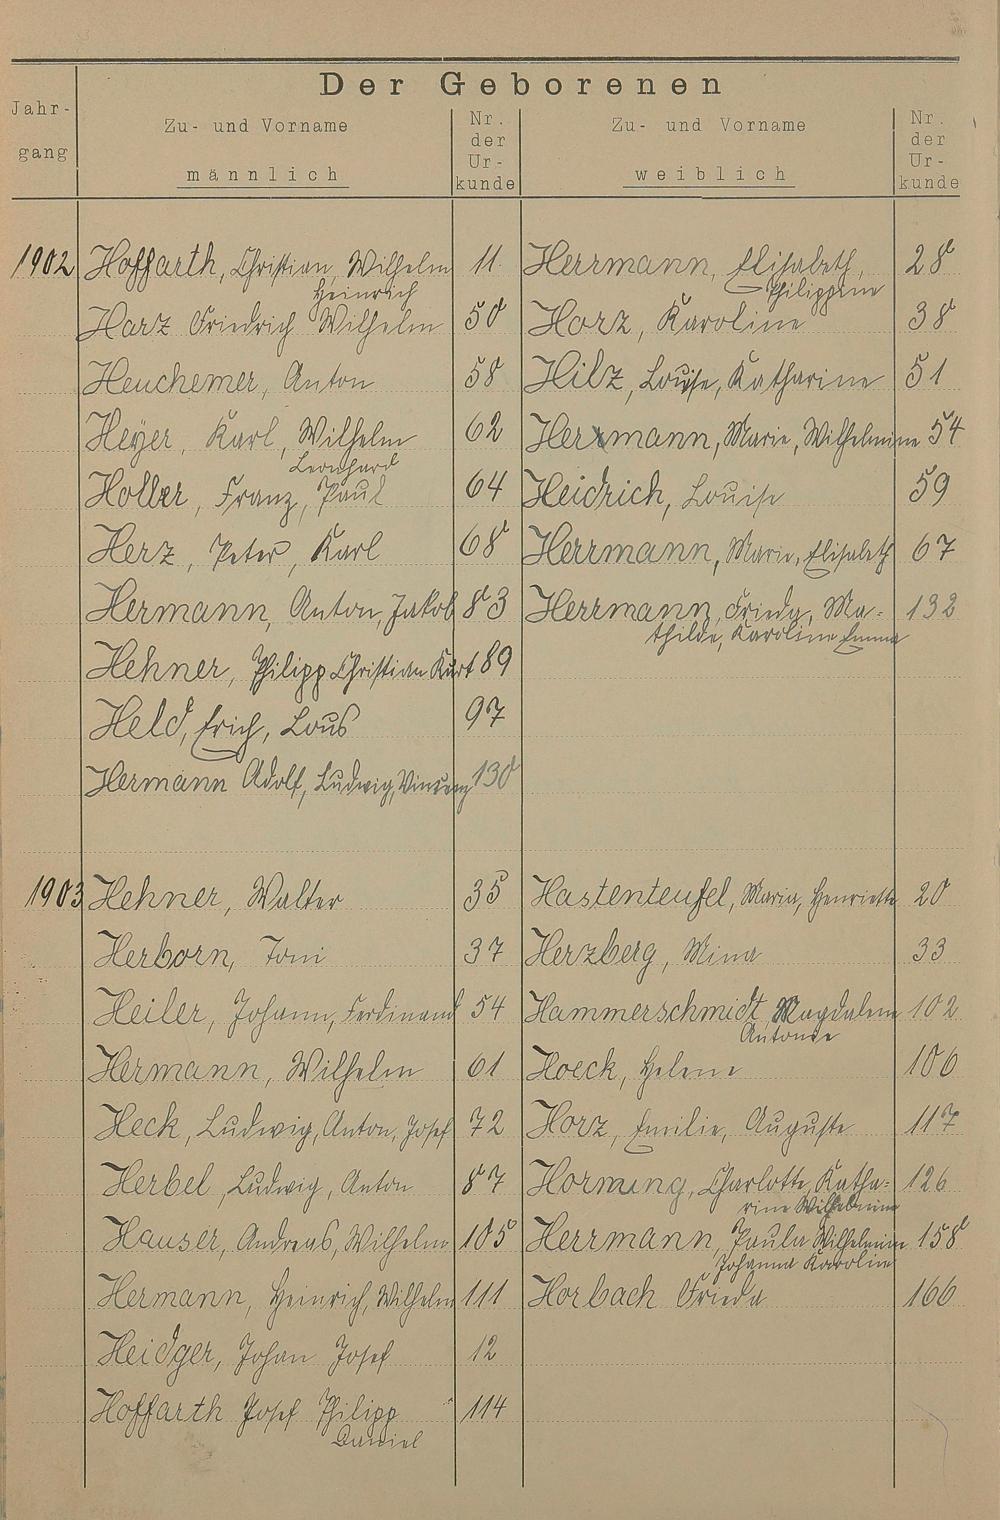 Der Geborenen
Jahr-
gang
Zu- und Vorname
männlich
Nr.
der
Ur-
kunde
Zu- und Vorname
weiblich
Nr.
der
Ur-
kunde
1902 Hoffarth, Christian Wilhelm 11. Herrmann, Elisabeth, 28
Heinrich Philippine
Harz Friedrich Wilhelm 50 Horz, Karoline 38
Heuchemer, Anton 58 Hilz, Louise, Katharine 51
Heyer, Karl, Wilhelm 62 Herrmann, Marie, Wilhelmine 54
Leonhard
Holler, Franz, Paul 64 Heidrich, Louise 59
Herz, Peter, Karl 68 Herrmann, Marie, Elisabeth 67
Hermann, Anton, Jakob 83 Herrmann, Frieda, Ma- 132
thilde, Karoline Emma
Hehner, Philipp Christian Kurt 89
Held, Erich, Lous 97
Hermann Adolf, Ludwig, Vinzenz 130
1903 Hehner, Walter 35 Hastenteufel, Maria, Henriette 20
Herborn, Toni 37 Herzberg, Mina 33
Heiler, Johann, Ferdinand 54 Hammerschmidt, Magdalene 102
Antonie
Hermann, Wilhelm 61 Hoeck, Helene 106
Heck, Ludwig, Anton, Josef 72 Horz, Emilie, Auguste 117
Herbel, Ludwig, Anton 87 Horning, Charlotte, Katha- 126
rine Wilhelmine
Hauser, Andreas, Wilhelm 105 Herrmann, Paula Wilhelmine 158
Johanna Karoline
Hermann, Heinrich, Wilhelm 111 Horbach Frieda 166
Heidger, Johan Josef 12
Hoffarth Josef Philipp 114
Daniel